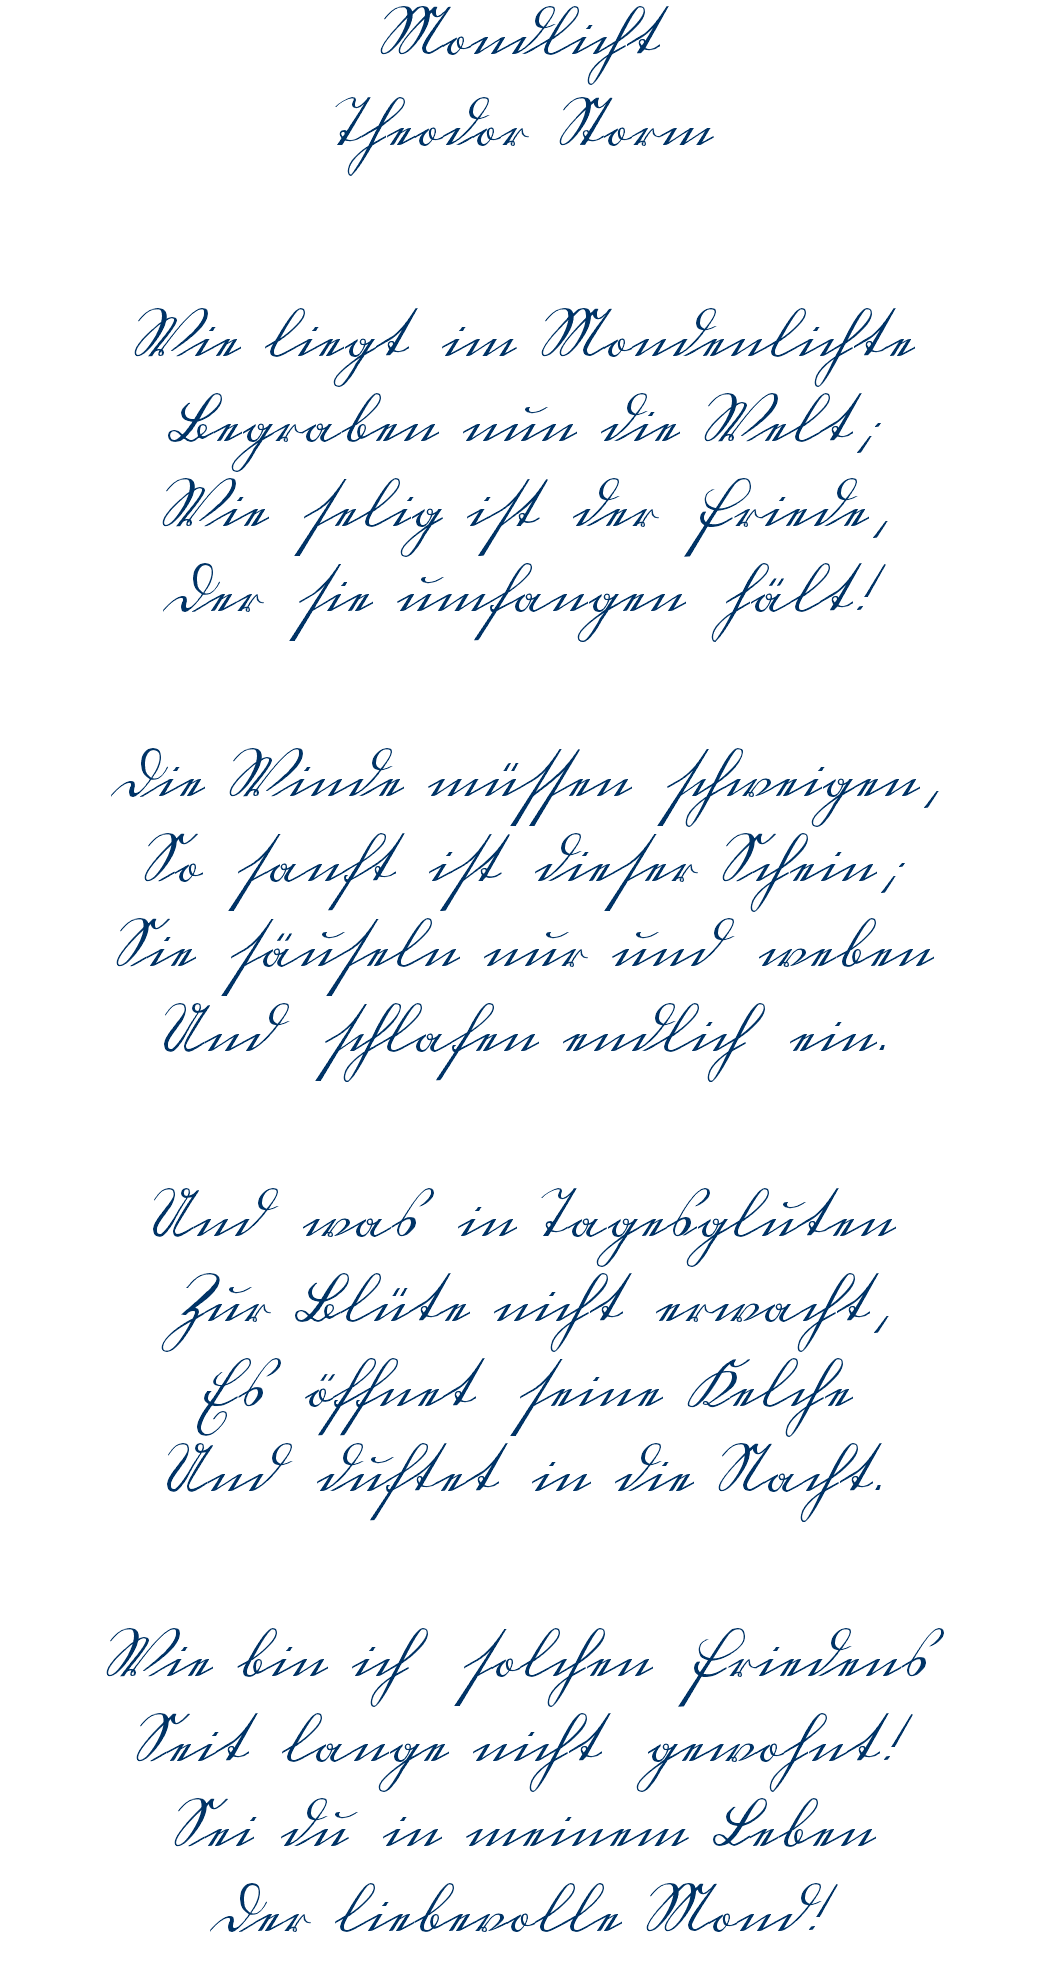 Mondlicht
Theodor Storm
Wie liegt im Mondenlichte
Begraben nun die Welt;
Wie selig ist der Friede,
Der sie umfangen hält!
Die Winde müssen schweigen,
So sanft ist dieser Schein;
Sie säuseln nur und weben
Und schlafen endlich ein.
Und was in Tagesgluten
Zur Blüte nicht erwacht,
Es öffnet seine Kelche
Und duftet in die Nacht.
Wie bin ich solchen Friedens
Seit lange nicht gewohnt!
Sei du in meinem Leben
Der liebevolle Mond!